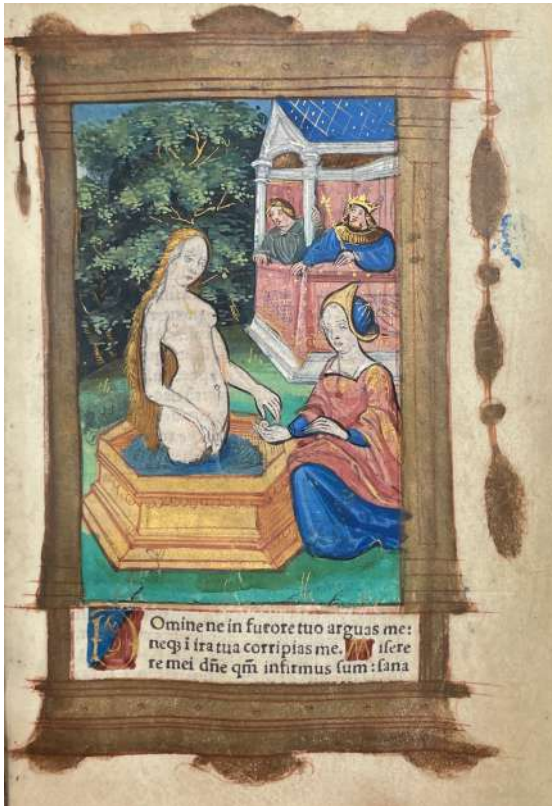 Omine ne in furore tuo arguas me:
neqꝫ ī ira tua corripias me. Misere
re mei dñe qm̄ infirmus sum: sana